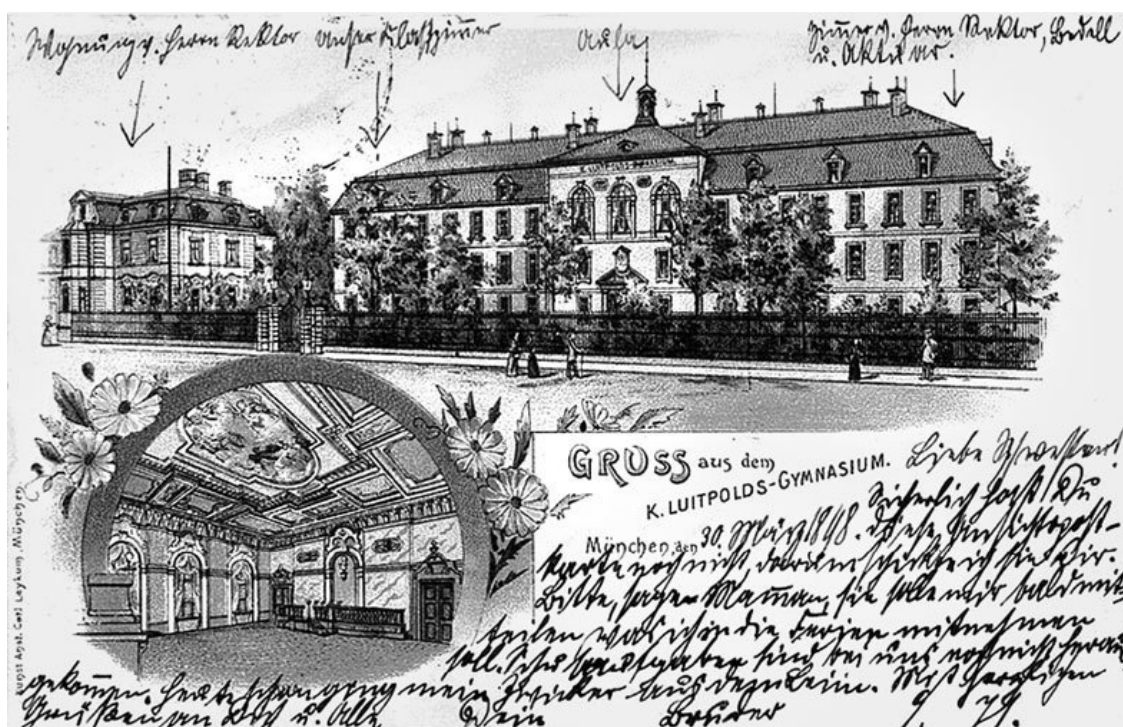 Wohnung v. Herrn Rektor
unser Klaßzimmer
Aula
Zimmer v. Herrn Rektor, Bedell
u. Aktuar.
K. LUITPOLDS-GYMNASIUM.
GRUSS aus dem
K. LUITPOLDS-GYMNASIUM.
Liebe Schwester!
München, den 30. März 1898.
Sicherlich hast Du
diese Ansichtspost-
karte noch nicht, darum schicke ich sie Dir.
Bitte, sage Maman, sie solle mir bald mit-
teilen was ich in die Ferien mitnehmen
soll. sind bei uns noch nicht heraus
gekommen. Heute mein Zwicker aus dem Leim. Mit herzlichen
Grüßen an Dich u. Alle Dein Bruder
Kunst Anst. Carl Leykum, München.